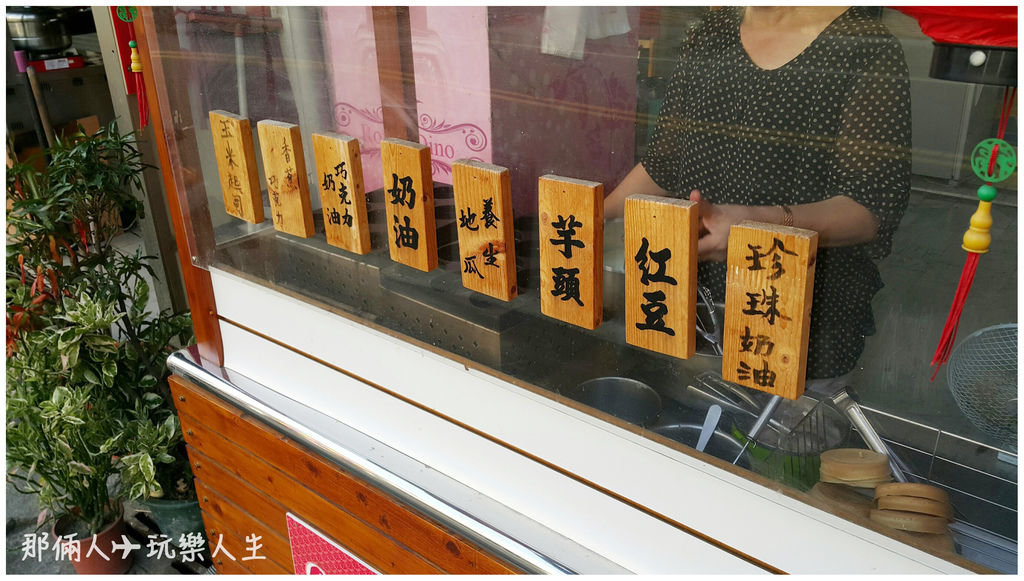 玉米起司
香蕉
巧克力
巧克力
奶油
奶油
養生
地瓜
芋頭
紅豆
珍珠奶油
那倆人✈玩樂人生